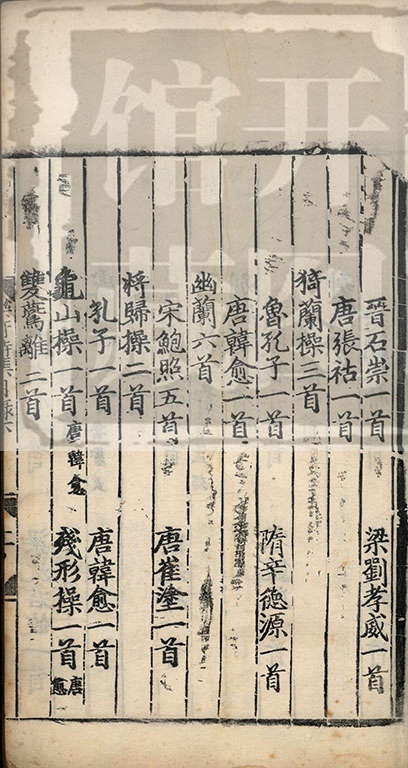 晉石崇一首 梁劉孝威一首
唐張祜一首
猗蘭操三首
魯孔子一首 隋辛德源一首
唐韓愈一首
幽蘭六首
宋鮑照五首 唐崔塗一首
將歸操二首
孔子一首 唐韓愈一首
龜山操一首 唐韓愈 殘形操一首 唐韓愈
雙燕離二首
开
馆